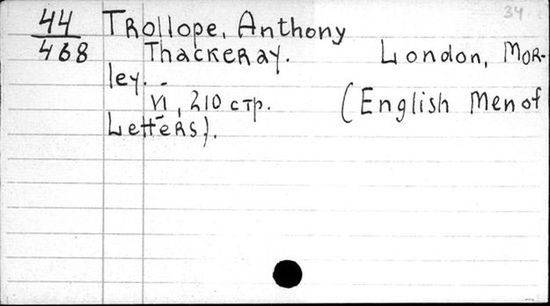 34
44 Trollope, Anthony
468 Thackeray. London, Mor-
ley.
VI, 210 стр. (English Men of
Letters).